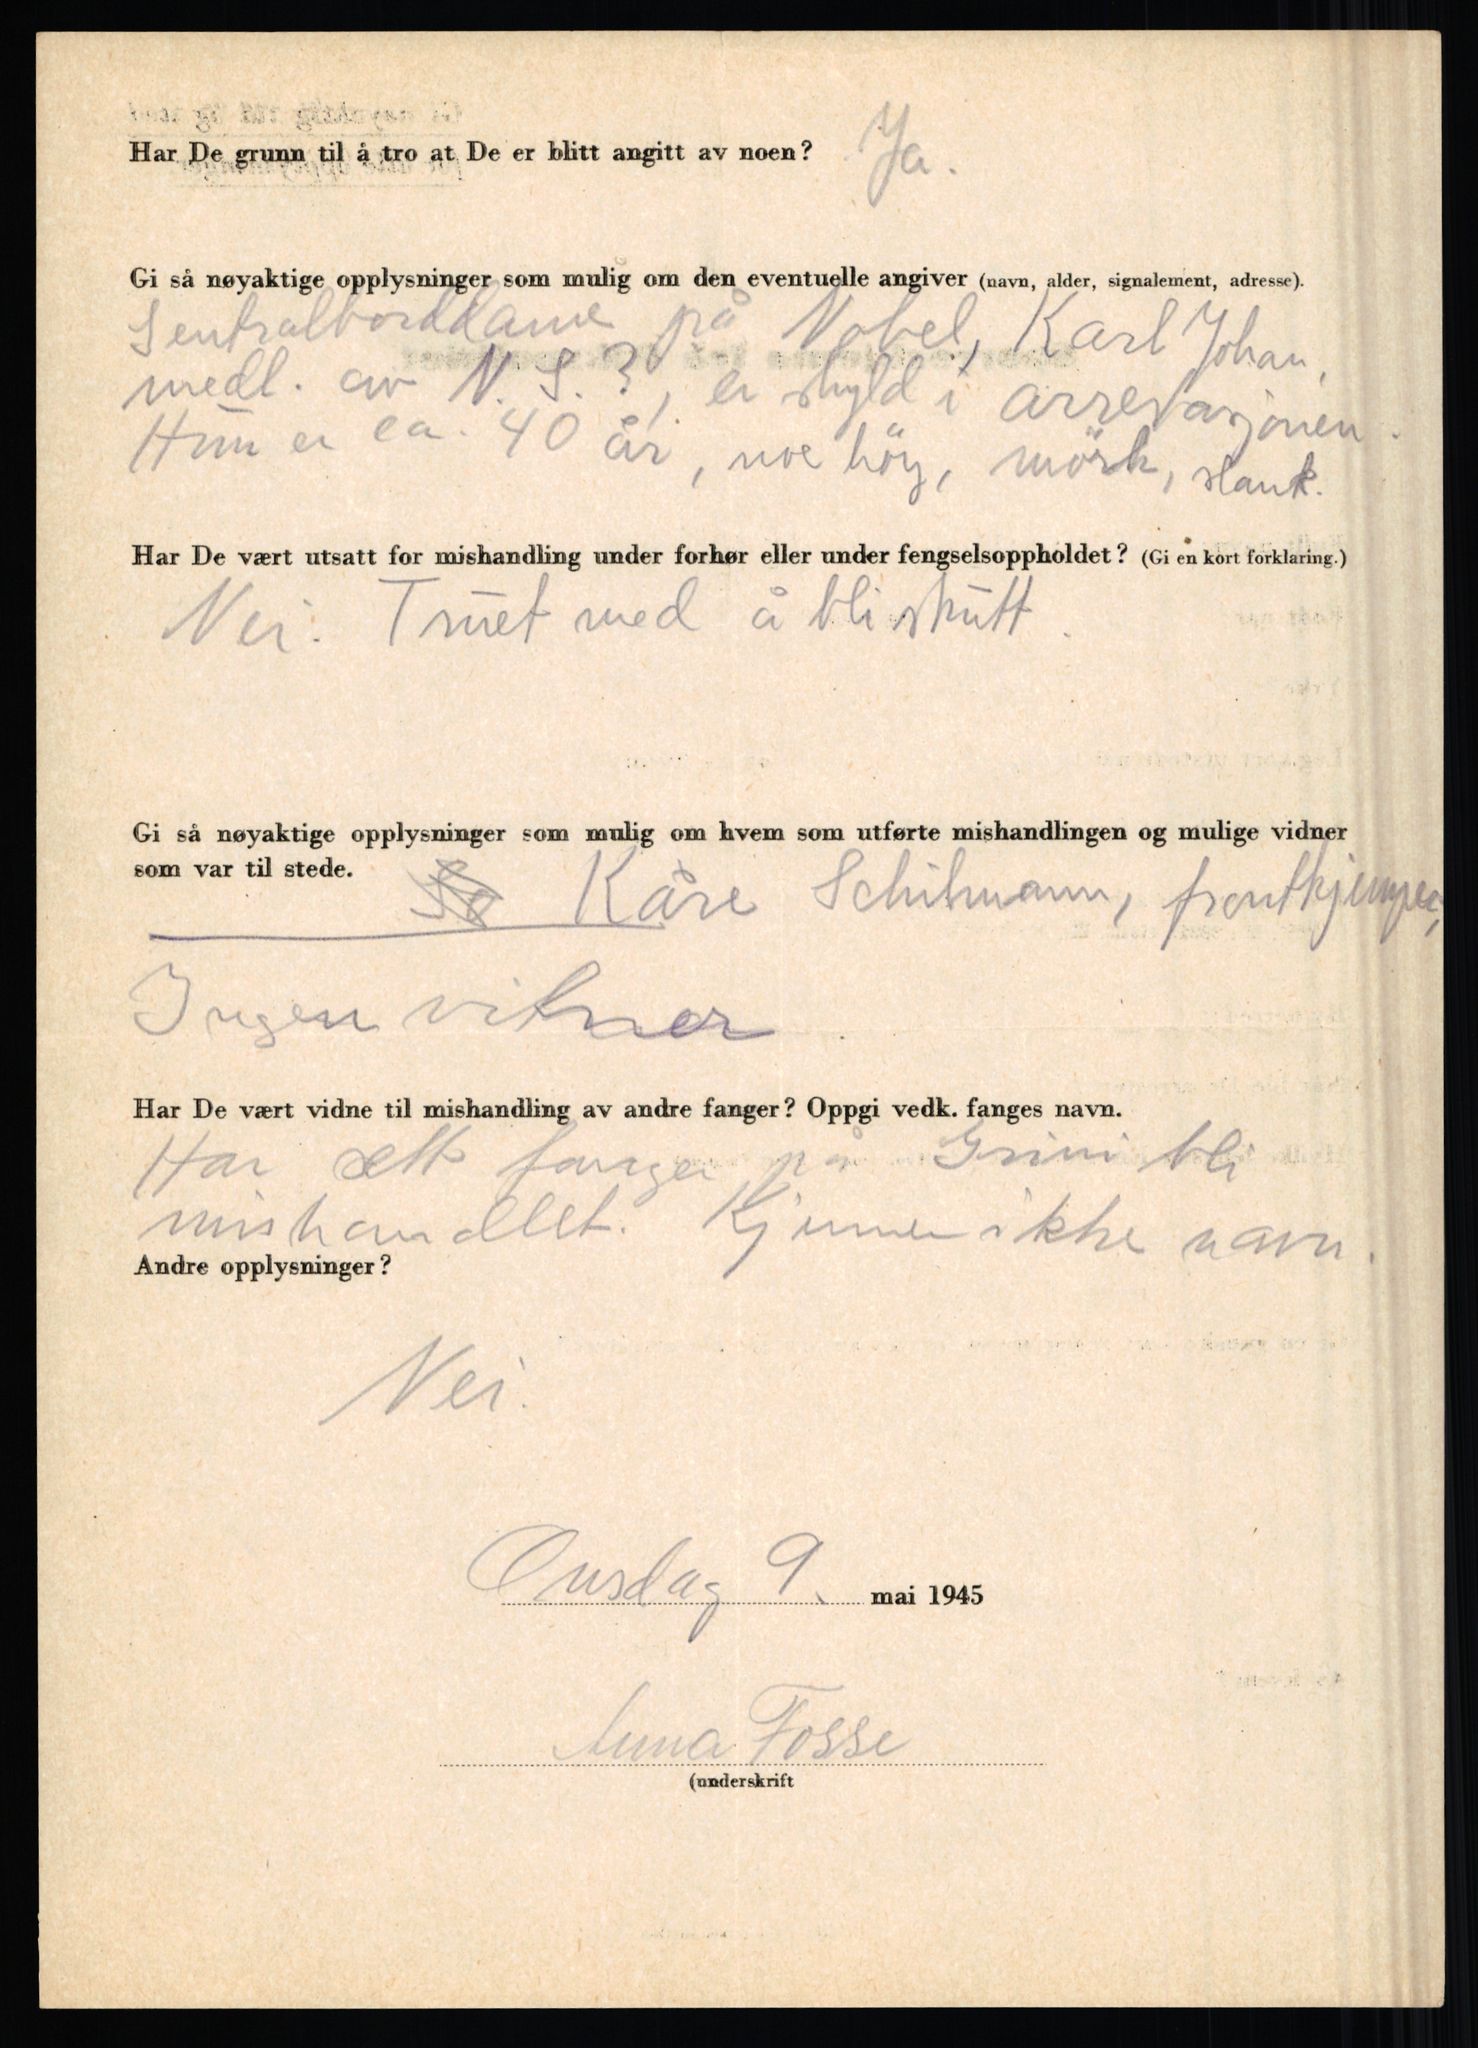 Har De grunn til å tro at De er blitt angitt av noen? Ja.
Gi så nøyaktige opplysninger som mulig om den eventuelle angiver (navn, alder, signalement, adresse).
Sentralborddame på Nobel, Karl Johan,
medl. av N.S.?, er skyld i arrestasjonen.
Hun er ca. 40 år, noe höy, mörk, slank.
Har De vært utsatt for mishandling under forhør eller under fengselsoppholdet? (Gi en kort forklaring.)
Nei. Truet med å bli skutt.
Gi så nøyaktige opplysninger som mulig om hvem som utførte mishandlingen og mulige vidner
som var til stede. Kåre frontkjemper,
Ingen vitner.
Har De vært vidne til mishandling av andre fanger? Oppgi vedk. fanges navn.
Har sett fanger på Grini bli
mishandlet. Kjenner ikke navn.
Andre opplysninger?
Nei.
Onsdag 9. mai 1945
Anna Fosse
(underskrift